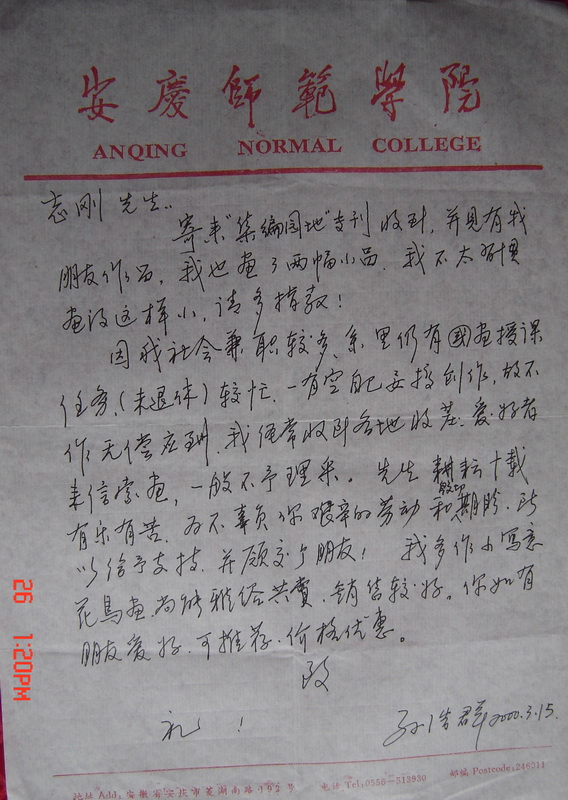 安慶師範學院
ANQING NORMAL COLLEGE
志刚先生：
寄来"集编园地"专刊收到，并见有我
朋友作品，我也画了两幅小品，我不太习惯
画得这样小，请多指教！
因我社会兼职较多，系里仍有国画授课
任务，(未退休)较忙，一有空自己要搞创作，故不
作无偿应酬，我经常收到各地收茬、爱好者
来信索画，一般不予理采。先生耕耘十载
有乐有苦，为不辜负你艰辛的劳动和殷切期盼，所
以给予支持，并愿交个朋友！我多作小写意
花鳥画，尚能雅俗共賞，销售较好。你如有
朋友爱好，可推荐，价格优惠。
致
礼！
孙浩群2000.3.15.
26 1:20PM
地址 Add: 安徽省安庆市菱湖南路 电话 Tel:0556—513930 邮编 Postcode:246011